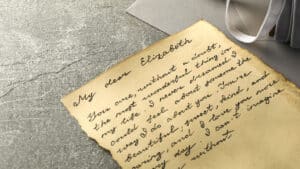 My dear Elizabeth
You are, without a doubt,
the most wonderful thing in
my life. I never dreamed I
could feel about someone the
way I do about you. You're
beautiful, sweet, kind, and
and I love you more
every day. I can't imagine
without